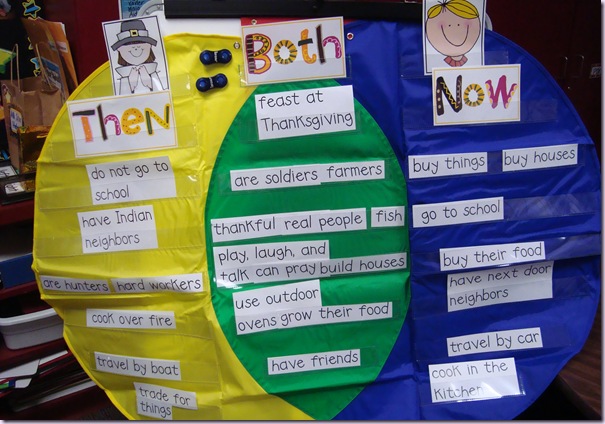 Then
Both
Now
do not go to
school
have Indian
neighbors
are hunters hard workers
cook over fire
travel by boat
trade for
things
feast at
Thanksgiving
are soldiers farmers
thankful real people fish
play, laugh, and
talk can pray build houses
use outdoor
ovens grow their food
have friends
buy things buy houses
go to school
buy their food
have next door
neighbors
travel by car
cook in the
kitchen